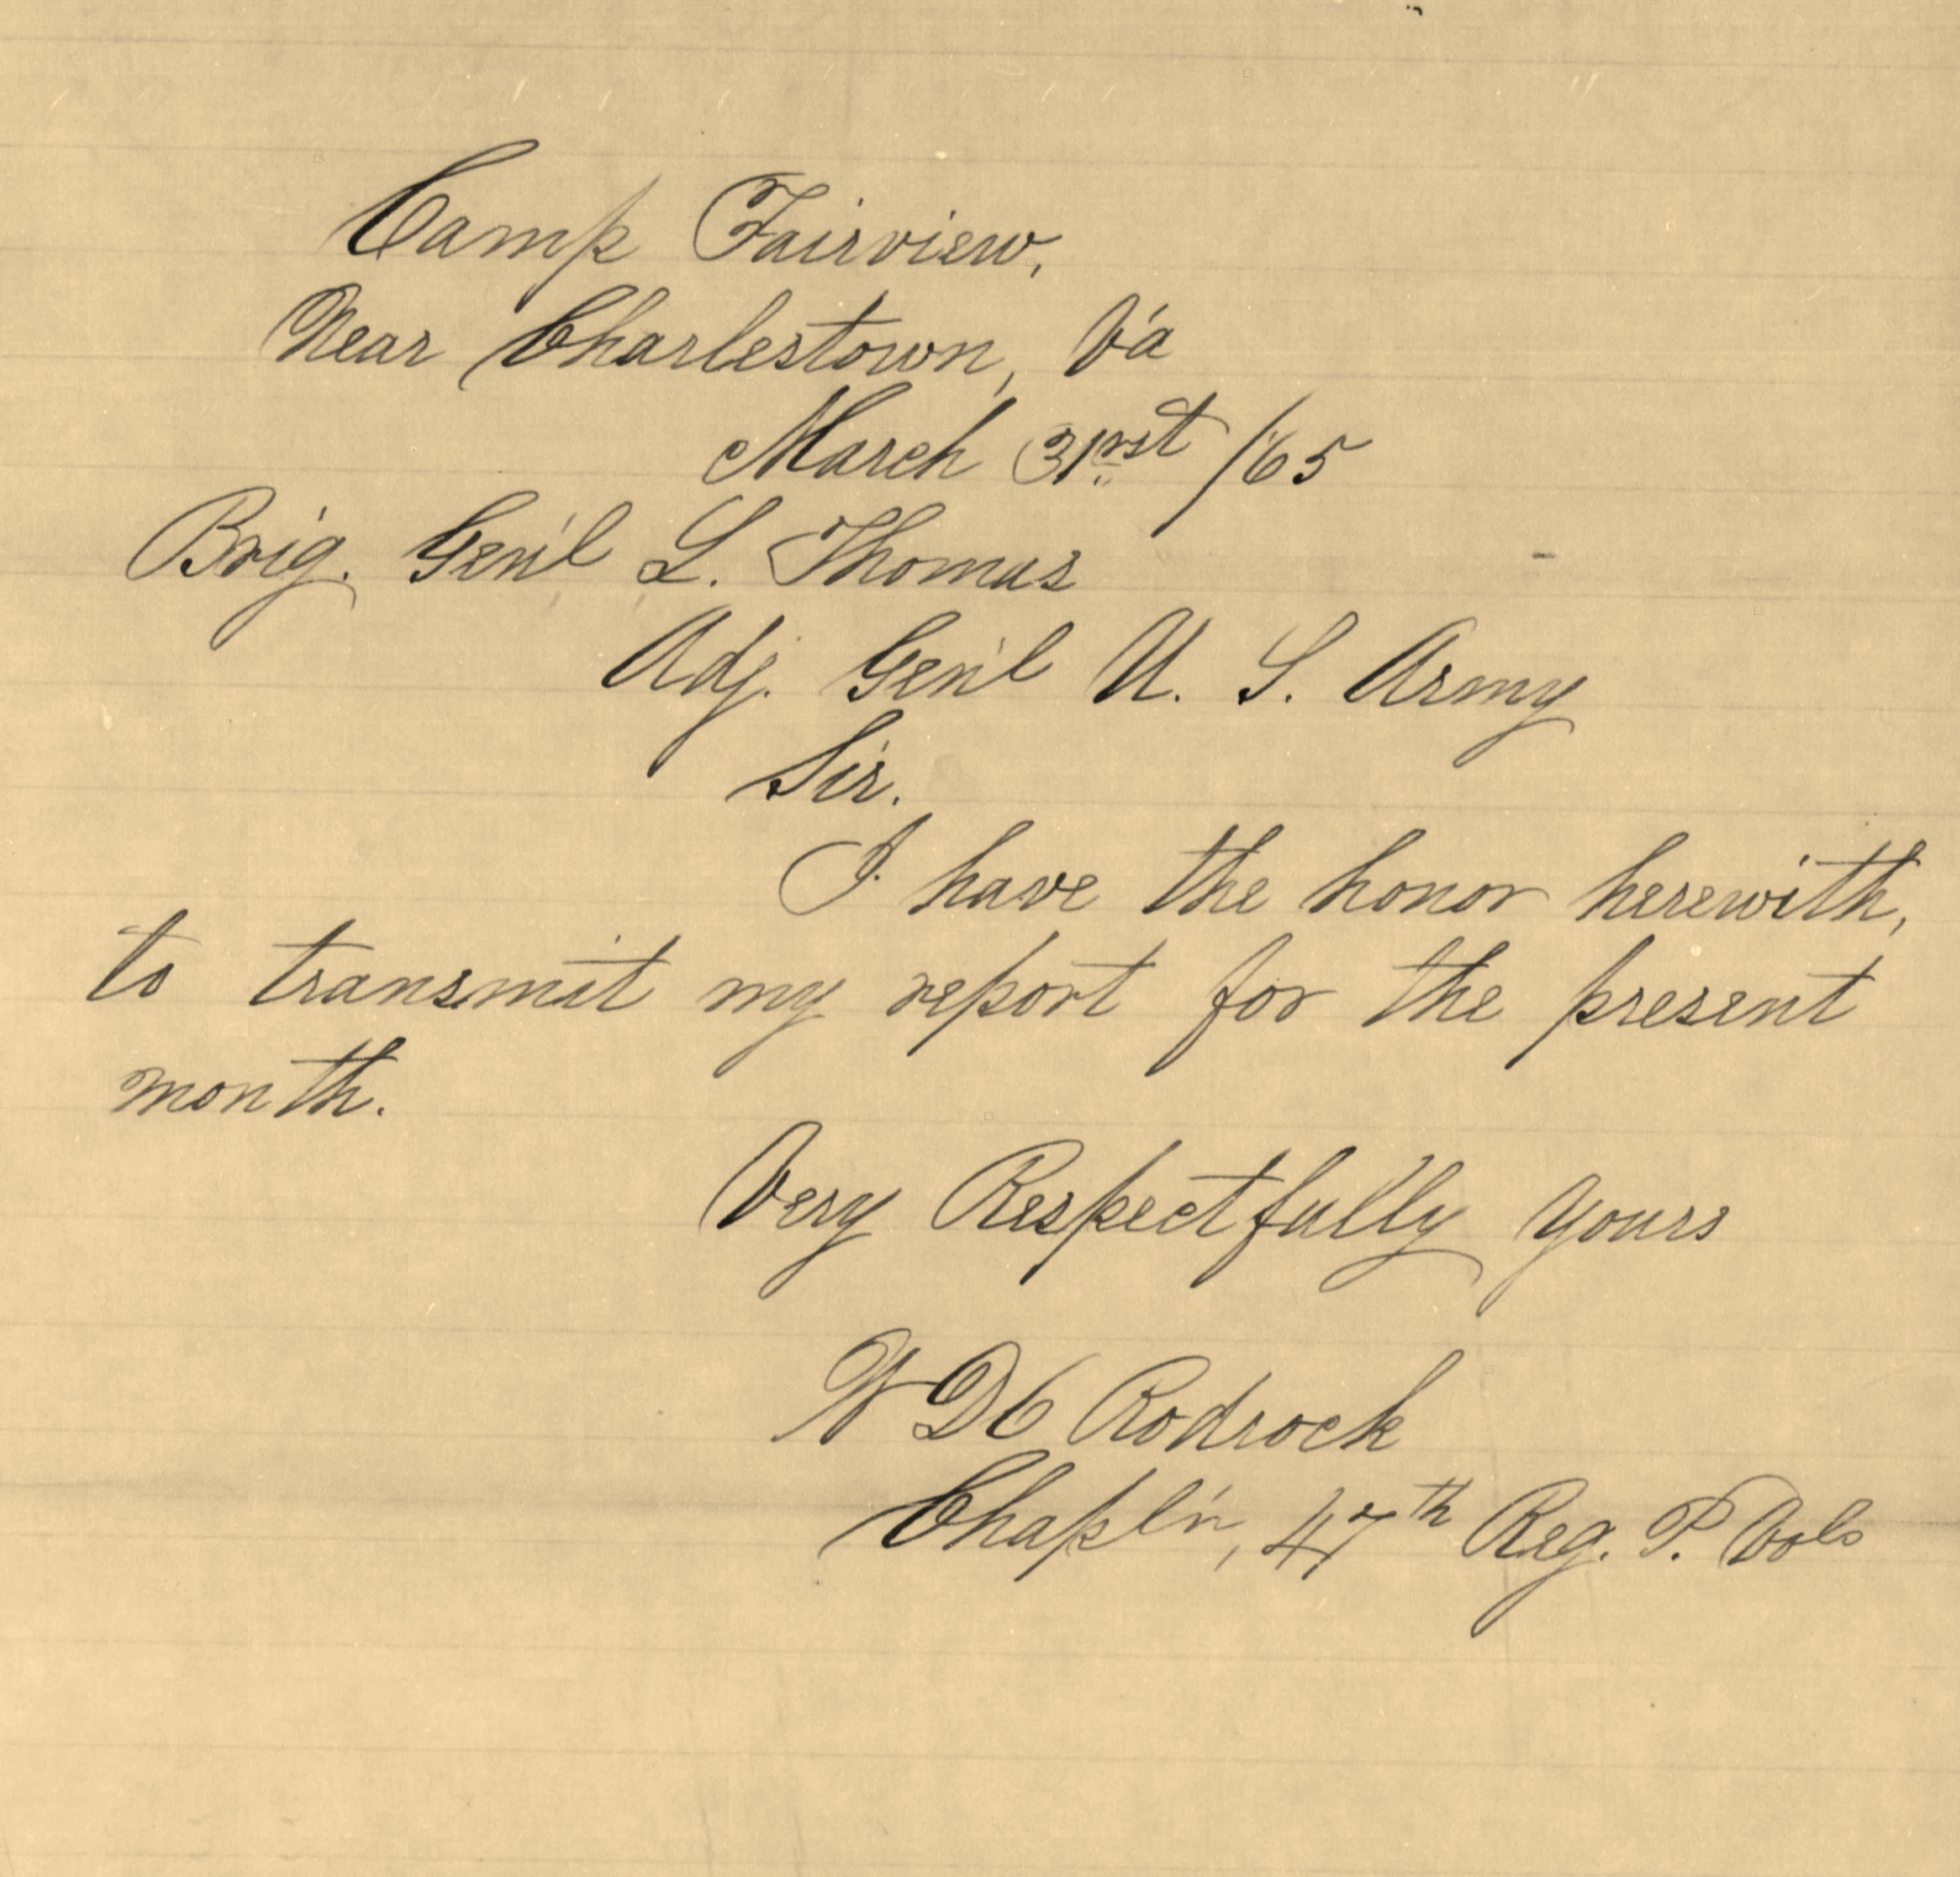 Camp Fairview,
Near Charlestown, Va
March 31rst /65
Brig. Gen'l L. Thomas
Adj. Gen'l U. S. Army
Sir.
I have the honor herewith,
to transmit my report for the present
month.
Very Respectfully Yours
W DC Rodrock
Chapl'n, 47th Reg. P. Vols